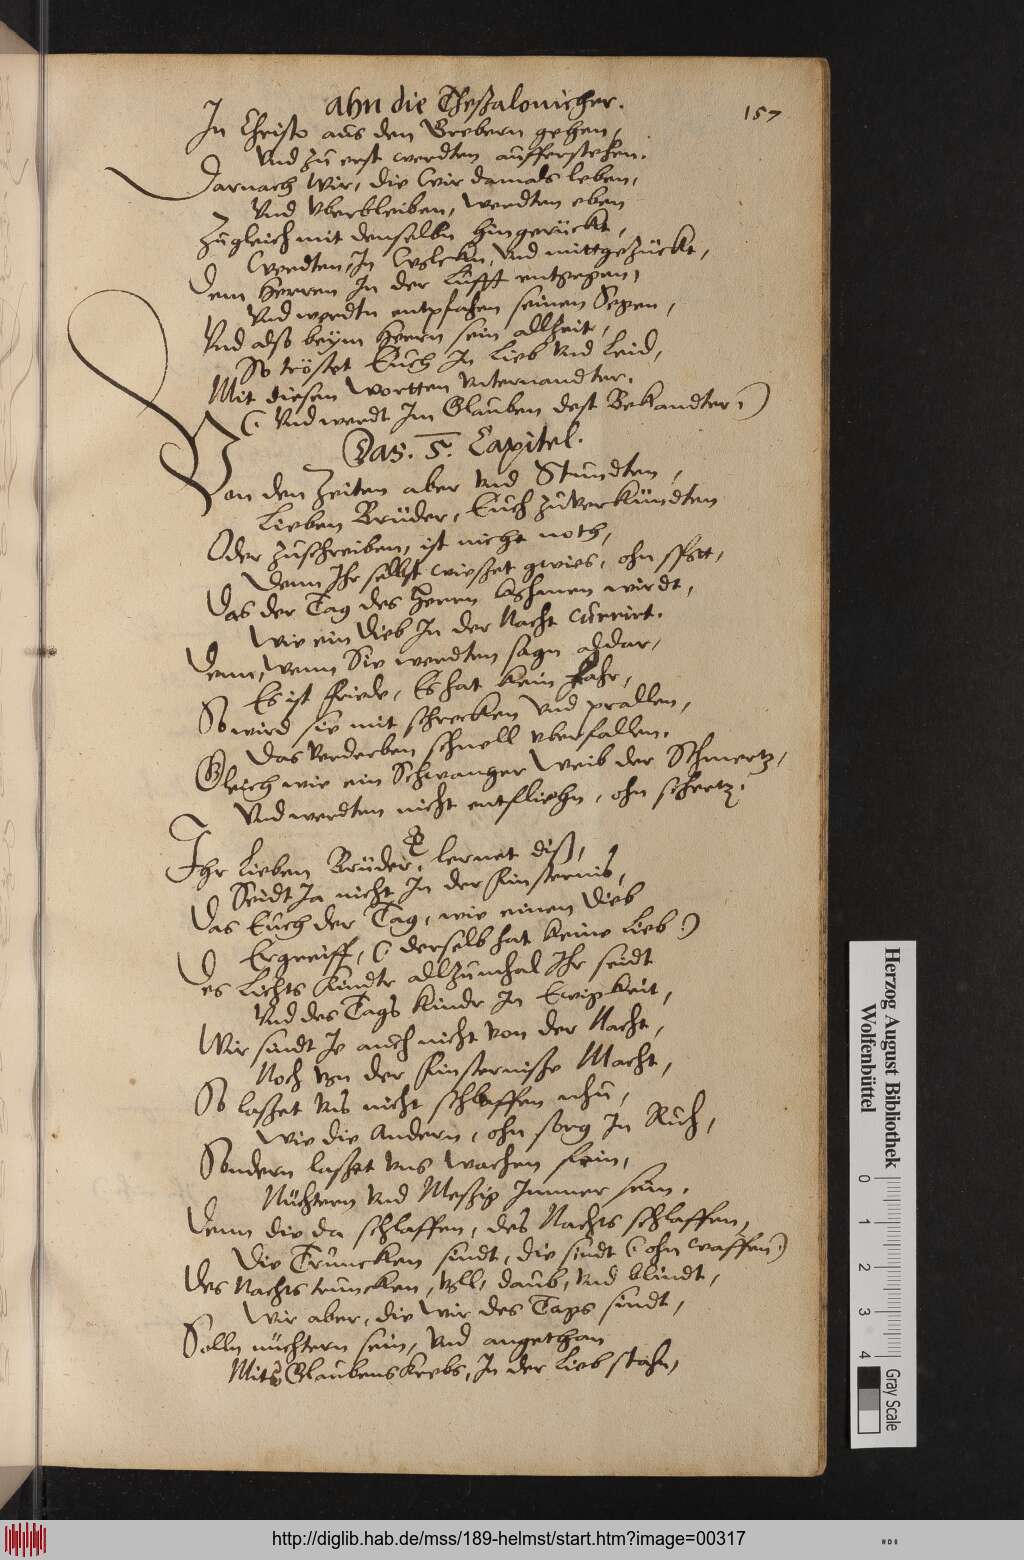 ahn die Theßalonicher.
157
In Christo aus den Grebern gehen,
Und zu erst werdten aufferstehen.
Darnach Wir, die Wir damals leben,
Und Uberbleiben, Werdten eben
Zugleich mit denselbn hingerückt,
Werdten, In Wolckn, Und mittgezückt,
Dem Herren In der Lufft entgegen,
Und werdtn entpfahen seinen Segen,
Und also beym Herrn sein allzeit,
So tröstet Euch In Lieb Und Leid,
Mit diesen Wortten Unternandter.
(: Und werdt Im Glauben dest Bekandter :)
Das. 5. Capitel.
Von den Zeiten aber Und Stundten,
Lieben Brüder, Euch zuverkündten
Oder zuschreiben, ist nicht noth,
Denn Ihr selbst wißet gwies, ohn spot,
Das der Tag des Herrn kohmen wirdt,
Wie ein Dieb In der Nacht currirt.
Denn, Wenn Sie werdten sagn aldar,
Es ist friede, Es hat kein fahr,
So wird sie mit schrecken Und prallen,
Das Verderben schnell uberfallen.
Gleich wie ein Schwanger Weib der Schmertz,
Und werdten nicht entfliehn, ohn schertz.
Ihr Lieben Brüder, lernet diß,
Seidt Ja nicht In der finsternis,
Das Euch der Tag, wie einen Dieb
Ergreiff, (: derselb hat keine Lieb :)
Des Lichts Kindtr allzumhal Ihr seidt
Und des Tags Kindr In Ewigkeit,
Wir sindt Je auch nicht Von der Nacht,
Noch Von der finsterniße Macht,
So laßet Uns nicht schlaffen nhu,
Wie die Andern, ohn sorg In Ruh,
Sondern laßet Uns Wachen fein,
Nüchtern Und Meßig Immer sein.
Denn die da schlaffen, des Nachts schlaffen,
Die Truncken sindt, die sindt (: ohn waffen :)
Des Nachts truncken, Voll, daub, Und blindt,
Wir aber, die Wir des Tags sindt,
Solln nüchtern sein, Und angethan
Mits Glaubens Krebs, In der Lieb stahn,
Herzog August Bibliothek
Wolfenbüttel
0 1 2 3 4
Gray Scale
http://diglib.hab.de/mss/189-helmst/start.htm?image=00317